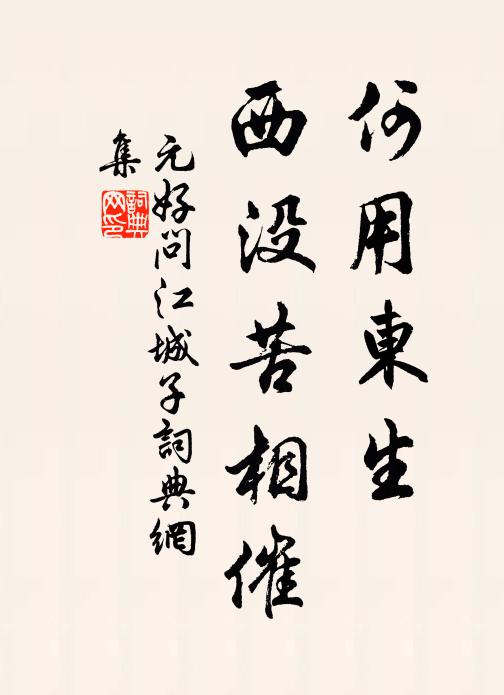 何用東生
西没苦相催
元好问江城子詞典網
集
詞典
网印